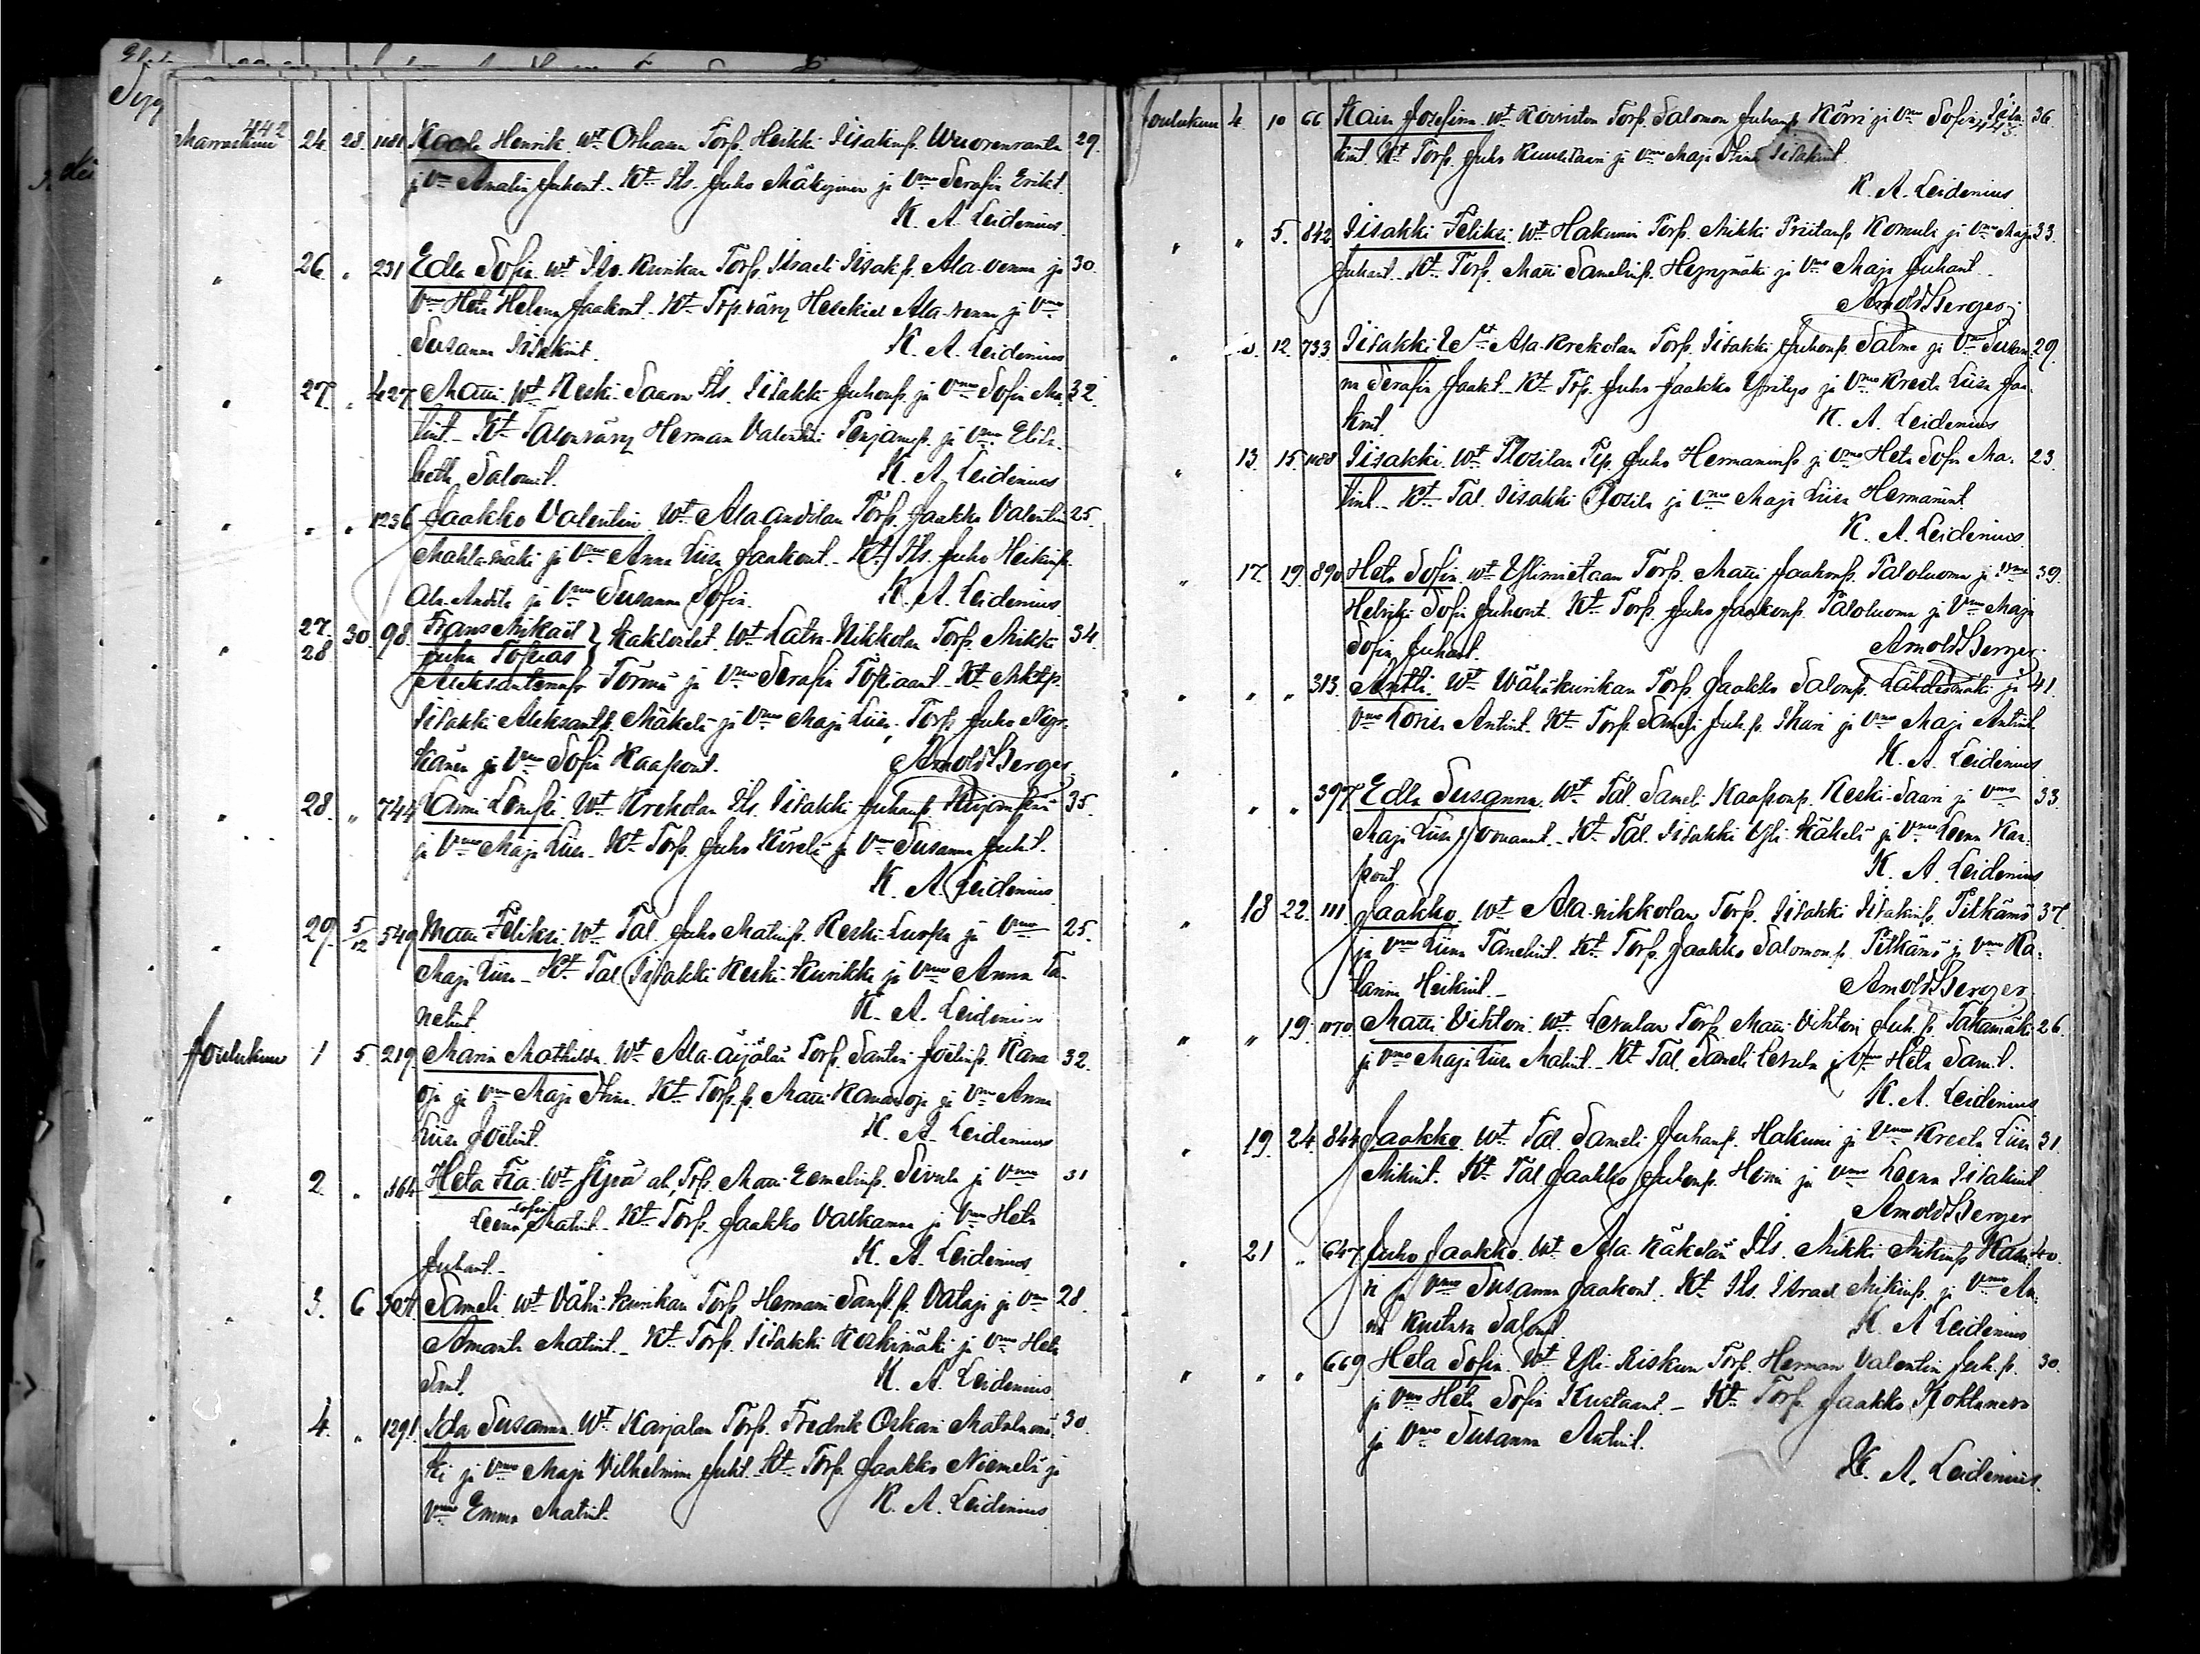 442
Marraskuu 24. 28. 1181 Kaarle Henrik. Wt. Orhaan Torp. Heikki Iisakinp. Wuorenranta 29.
ja Vmo Amalia Juhont. Kt. Its. Juho Mäkynen ja Vmo Serafia Erikt.
K. A. Leidenius.
" 26. " 231 Edla Sofia. Wt. Its. Kurikan Torp. Israeli Iisakp. Ala-venna ja 30.
Vmo Heta Helena Jaakont. Kt. Trp. vävy Hesekiel Ala-venna ja Vmo
Susanna Iisakint. K. A. Leidenius
" 27. " 427. Matti. Wt. Keski-Saaren Its. Iisakki Juhonp. ja Vmo Sofia Ma- 32.
tint. Kt. Talonvävy Herman Valentin Penjamp. ja Vmo Elisa-
beth Salomt. K. A. Leidenius
" " " 1236 Jaakko Valentin. Wt. Ala anttilan Torp. Jaakko Valentin 25.
Mahlamäki ja Vmo Anna Liisa Jaakont. Kt. Its. Juho Heikinp.
Ala-Anttila ja Vmo Susanna Sofia. K. A. Leidenius
" 27. 28 30. 98. Frans Mikael } kaksoiset. Wt. Latva-Nikkolan Torp. Mikki 34.
Juha Topias
Aleksanterinp. Törmä ja Vmo Serafia Topiaant. Kt.
Iisakki Aleksantp. Mäkelä ja Vmo Maja Liisa. Torp. Juho
ja Vmo Sofia Kaapont. Arnold Berger
" 28. " 744 Lempi. Wt. Krekolan Its. Iisakki Juhanp. 35.
ja Vmo Maja Liisa. Kt. Torp. Juho ja Vmo Susanna Juht.
K. A. Leidenius
" 29. 5/12 549 Matti Feliksi. Wt. Tal. Juho Matinp. Keski-Luopa ja Vmo 25.
Maja Liisa. Kt. Tal. Iisakki Keski-Kurikka ja Vmo Anna Ta-
nelint. K. A. Leidenius
Joulukuu 1 5. 219. Maria Mathilda. Wt. Ala-äijälän Torp. Santeri Joelinp. Kana 32.
oja ja Vmo Maja Stina. Kt. Torp. p. Matti Kanaoja ja Vmo Anna
Liisa Joelint. K. A. Leidenius
" 2. " 364 Heta Fia. Wt. al. Trp. Matti Eemelinp. Sivula ja Vmo 31
Leena Sofia Matint. Kt. Torp. Jaakko Valkama ja Vmo Heta
Juhant. K. A. Leidenius
" 3. 6 307 Sameli. Wt. Vähä-Kurikan Torp. Hermani Samp. p. Valaja ja Vmo 28.
Amanta Matint. Kt. Torp. Iisakki Koskimäki ja Vmo Heta
Samt. K. A. Leidenius
" 4. " 1291. Ida Susanna. Wt. Karjalan Torp. Fredrik Oskari 30.
ki ja Vmo Maja Vilhelmina Juht. Kt. Torp. Jaakko Niemelä ja
Vmo Emma Matint. K. A. Leidenius
443.
Joulukuu 4. 10 66 Kaisa Josefiina. Wt. Koiviston Torp. Salomon Juhanp. Körri ja Vmo Sofia Iisa- 36.
kint. Kt. Torp. Juho Kuusisaari ja Vmo Maja Stina Iisakint.
K. A. Leidenius
" " 5. 842. Iisakki Feliksi. Wt. Hakunin Torp. Mikki Priitanp. Komula ja Vmo Maja 33.
Juhant. Kt. Torp. Matti Samelinp. Hyyrymäki ja Vmo Maja Juhant.
Arnold Berger
" 12. 733 Iisakki. Wt. Ala-Krekolan Torp. Iisakki Juhonp. Salma ja Vmo Susan- 29.
na Serafia Jaakt. Kt. Trp. Juho Jaakko Yritys ja Vmo Kreeta Liisa Jaa-
kint. K. A. Leidenius
" 13. 15. 1188 Iisakki. Wt. Plosilan Trp. Juho Hermaninp. ja Vmo Heta Sofia Ma- 23.
tint. Kt. Tal. Iisakki Plosila ja Vmo Maja Liisa Hermanint.
K. A. Leidenius.
" 17. 19. 890 Heta Sofia. Wt. Ylimietaan Torp. Matti Jaakonp. Paloluoma ja Vmo 39.
Helviki Sofia Juhont. Kt. Torp. Juho Jaakonp. Paloluoma ja Vmo Maja
Sofia Juhant. Arnold Berger.
" " " 313. Antti. Wt. Wähäkurikan Torp. Jaakko Salomp. Lähdesmäki ja 41.
Vmo Lovisa Antint. Kt. Torp. Sameli Juh. p. Ikari ja Vmo Maja Antint.
K. A. Leidenius
" " " 397 Edla Susanna. Wt. Tal. Sameli Kaaponp. Keski-Saari ja Vmo 33.
Maja Liisa Joonaant. Kt. Tal. Iisakki Yli Käkelä ja Vmo Leena Kaa-
pont. K. A. Leidenius
" 18 22. 111. Jaakko. Wt. Ala-nikkolan Torp. Iisakki Iisakinp. Pitkämö 37.
ja Vmo Liina Tanelint. Kt. Torp. Jaakko Salomon p. Pitkämö ja Vmo Ka-
tarina Heikint. Arnold Berger
" " 19. 1070. Matti Vihtori. Wt. Levulan Torp. Matti Vihtori Juh. p. Takamäki 26.
ja Vmo Maja Liisa Matint. Kt. Tal. Sameli Levula ja Vmo Heta Samt.
K. A. Leidenius
" 19. 24. 844 Jaakko. Wt. Tal. Sameli Juhanp. Hakuni ja Vmo Kreeta Liisa 31.
Mikint. Kt. Tal. Jaakko Juhonp. Horri ja Vmo Leena Iisakint.
Arnold Berger
" 21 " 647 Juho Jaakko. Wt. Ala Käkelän Its. Mikki Mikinp. Kaa- 40.
ri ja Vmo Susanna Jaakont. Kt. Its. Israel Mikinp. ja Vmo An-
na Kustava Salomt. K. A. Leidenius
" " " 669 Heta Sofia. Wt. Yli-Riskun Torp. Herman Valentin Juh. p. 30.
ja Vmo Heta Sofia Kustaant. Kt. Torp. Jaakko Koktaneva
ja Vmo Susanna Antint.
K. A. Leidenius.